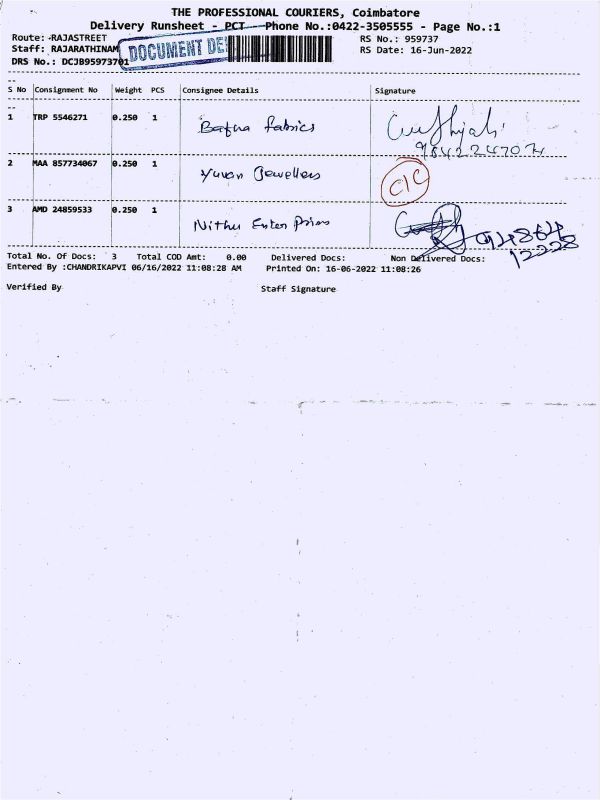 THE PROFESSIONAL COURIERS, Coimbatore
Delivery Runsheet - PCT - Phone No.:0422-3505555 - Page No.:1
Route: RAJASTREET RS No.: 959737
Staff: RAJARATHINAM DOCUMENT DE RS Date: 16-Jun-2022
DRS No.: DCJB95973701
S No Consignment No Weight PCS Consignee Details Signature
1 TRP 5546271 0.250 1 Bafna fabrics
2 MAA 857734067 0.250 1 Yuvan Jewellers C/C
3 AMD 24859533 0.250 1 Nithu Enter Prises
Total No. Of Docs: 3 Total COD Amt: 0.00 Delivered Docs: Non Delivered Docs:
Entered By :CHANDRIKAPVI 06/16/2022 11:08:28 AM Printed On: 16-06-2022 11:08:26
Verified By Staff Signature